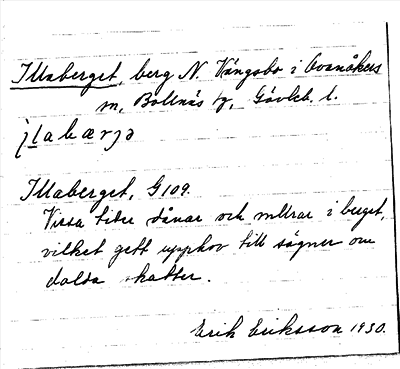 Illaberget, berg N. Vängsbo i Ovanåkers
m, Bollnäs tg, Gävleb. l.
Illaberget, G109.
Vissa tider dånar och mullrar i berget,
vilket gett upphov till sägner om
dolda skatter.
Erik Eriksson 1930.